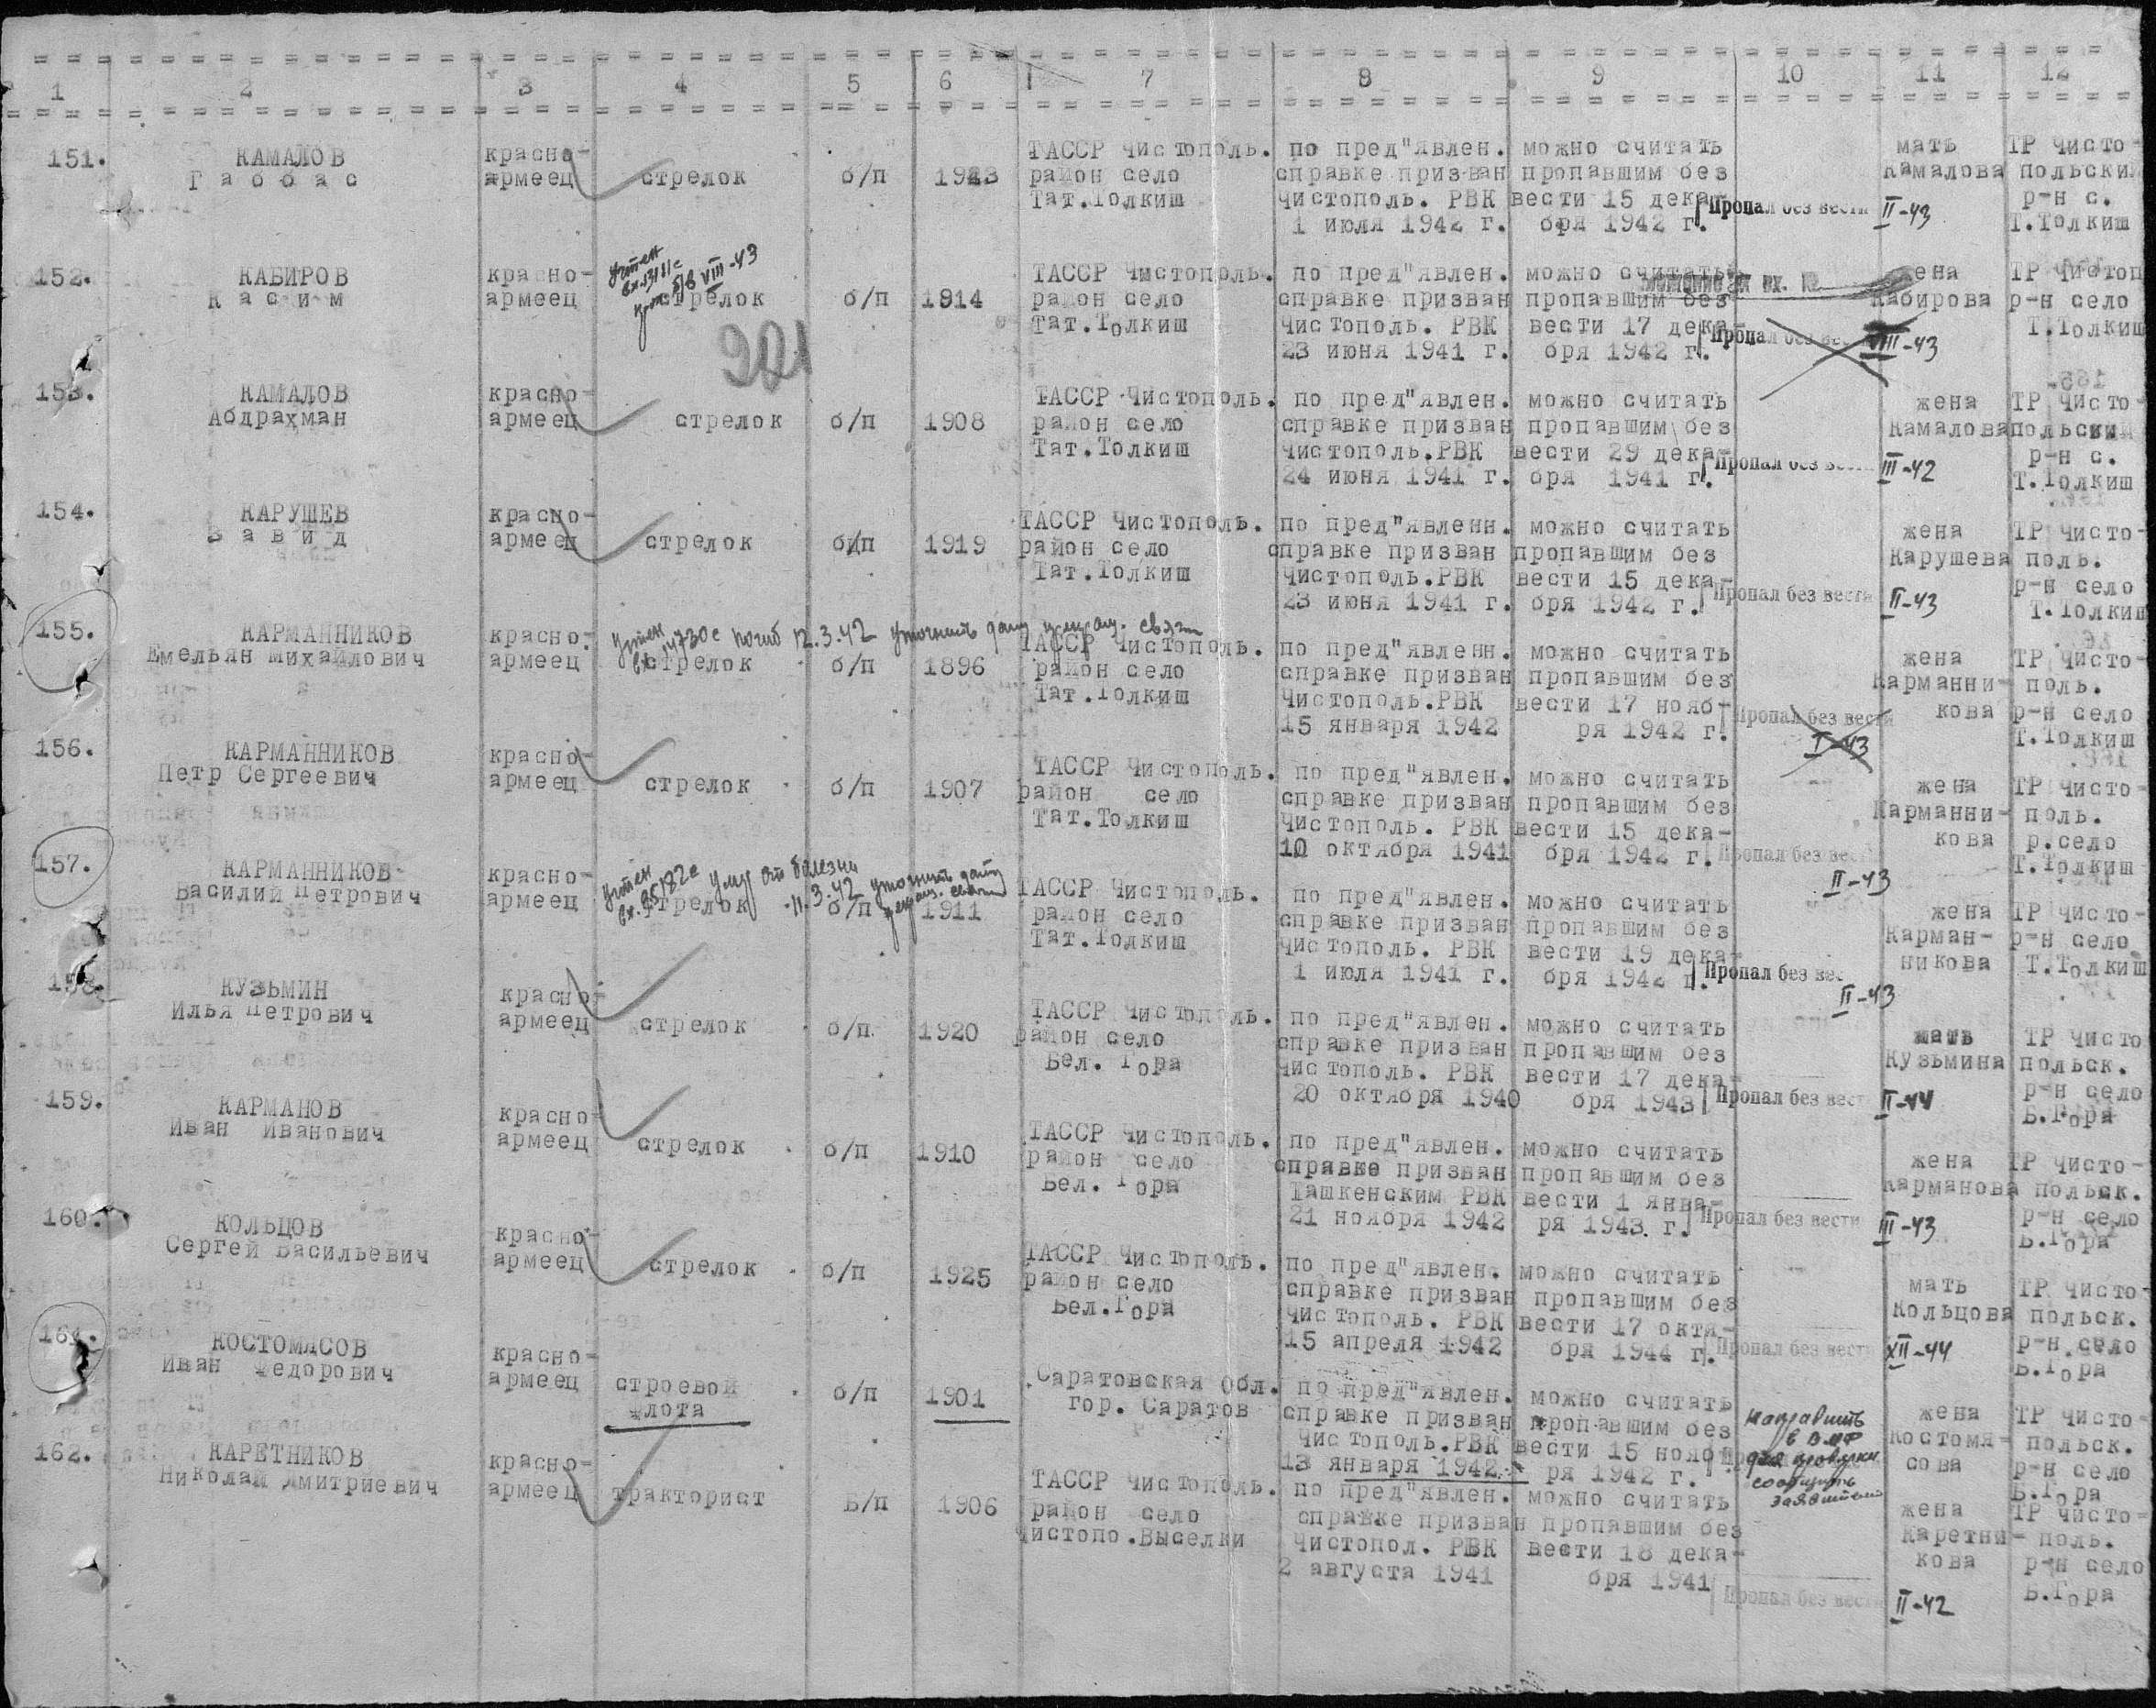 1 2 3 4 5 6 7 8 9 10 11 12
151. КАМАЛОВ Габбас красно-армеец стрелок б/п 1923 ТАССР Чистополь. район село Тат.Толкиш по пред"явлен. справке призван Чистополь. РВК 1 июля 1942 г. можно считать пропавшим без вести 15 декабря 1942 г. Пропал без вести II-43 мать Камалова ТР Чистопольский р-н с. Т.Толкиш
152. КАБИРОВ Касим красно-армеец стрелок б/п 1914 ТАССР Чистополь. район село Тат.Толкиш по пред"явлен. справке призван Чистополь. РВК 23 июня 1941 г. можно считать пропавшим без вести 17 декабря 1942 г. Пропал без вести VIII-43 жена Кабирова ТР Чистоп р-н село Т.Толкиш
учтен б/в VIII-43
153. КАМАЛОВ Абдрахман красно-армеец стрелок б/п 1908 ТАССР Чистополь. район село Тат.Толкиш по пред"явлен. справке призван Чистополь.РВК 24 июня 1941 г. можно считать пропавшим без вести 29 декабря 1941 г. Пропал без вести III-42 жена Камалова ТР Чистопольский р-н с. Т.Толкиш
154. КАРУШЕВ Завид красно-армеец стрелок б/п 1919 ТАССР Чистополь. район село Тат.Толкиш по пред"явленн. справке призван Чистополь.РВК 23 июня 1941 г. можно считать пропавшим без вести 15 декабря 1942 г. Пропал без вести II-43 жена Карушева ТР Чисто-поль. р-н село Т.Толкиш
155. КАРМАННИКОВ Емельян Михайлович красно-армеец стрелок б/п 1896 ТАССР Чистополь. район село Тат.Толкиш по пред"явленн. справке призван Чистополь.РВК 15 января 1942 можно считать пропавшим без вести 17 ноября 1942 г. Пропал без вести I-43 жена Карманникова ТР Чисто-поль. р-н село Т.Толкиш
учтен вх. 14730с погиб 12.3.42 уточнить дату прекращ. связи
156. КАРМАННИКОВ Петр Сергеевич красно-армеец стрелок б/п 1907 ТАССР Чистополь. район село Тат.Толкиш по пред"явлен. справке призван Чистополь. РВК 10 октября 1941 можно считать пропавшим без вести 15 декабря 1942 г. Пропал без вести II-43 жена Карманникова ТР Чисто-поль. р.село Т.Толкиш
157. КАРМАННИКОВ Василий Петрович красно-армеец стрелок б/п 1911 ТАССР Чистополь. район село Тат.Толкиш по пред"явлен. справке призван Чистополь. РВК 1 июля 1941 г. можно считать пропавшим без вести 19 декабря 1942 г. Пропал без вести II-43 жена Карманникова ТР Чисто-р-н село Т.Толкиш
учтен вх. 95182с умер от болезни 11.3.42 уточнить дату прекращ. связи
158. КУЗЬМИН Илья Петрович красно-армеец стрелок б/п 1920 ТАССР Чистополь. район село Бел. Гора по пред"явлен. справке призван Чистополь. РВК 20 октября 1940 можно считать пропавшим без вести 17 декабря 1943 Пропал без вести II-44 мать Кузьмина ТР Чисто польск. р-н село Б.Гора
159. КАРМАНОВ Иван Иванович красно-армеец стрелок б/п 1910 ТАССР Чистополь. район село Бел. Гора по пред"явлен. справке призван Ташкенским РВК 21 ноября 1942 можно считать пропавшим без вести 1 января 1943 г. Пропал без вести III-43 жена Карманова ТР Чисто-польск. р-н село Б.Гора
160. КОЛЬЦОВ Сергей Васильевич красно-армеец стрелок б/п 1925 ТАССР Чистополь. район село Бел.Гора по пред"явлен. справке призван Чистополь. РВК 15 апреля 1942 можно считать пропавшим без вести 17 октября 1944 г. Пропал без вести XII-44 мать Кольцова ТР Чисто-польск. р-н село Б.Гора
161. КОСТОМАСОВ Иван Федорович красно-армеец строевой флота б/п 1901 Саратовская Обл. гор. Саратов по пред"явлен. справке призван Чистополь.РВК 13 января 1942 можно считать пропавшим без вести 15 ноября 1942 г. направить в ВМФ для проверки сообщить заявителю жена Костомясова ТР Чисто-польск. р-н село Б.Гора
162. КАРЕТНИКОВ Николай Дмитриевич красно-армеец тракторист Б/п 1906 ТАССР Чистополь. район село Чистопо.Выселки по пред"явлен. справке призван Чистопол. РВК 2 августа 1941 можно считать пропавшим без вести 18 декабря 1941 Пропал без вести II-42 жена Каретникова ТР Чисто-поль. р-н село Б.Гора